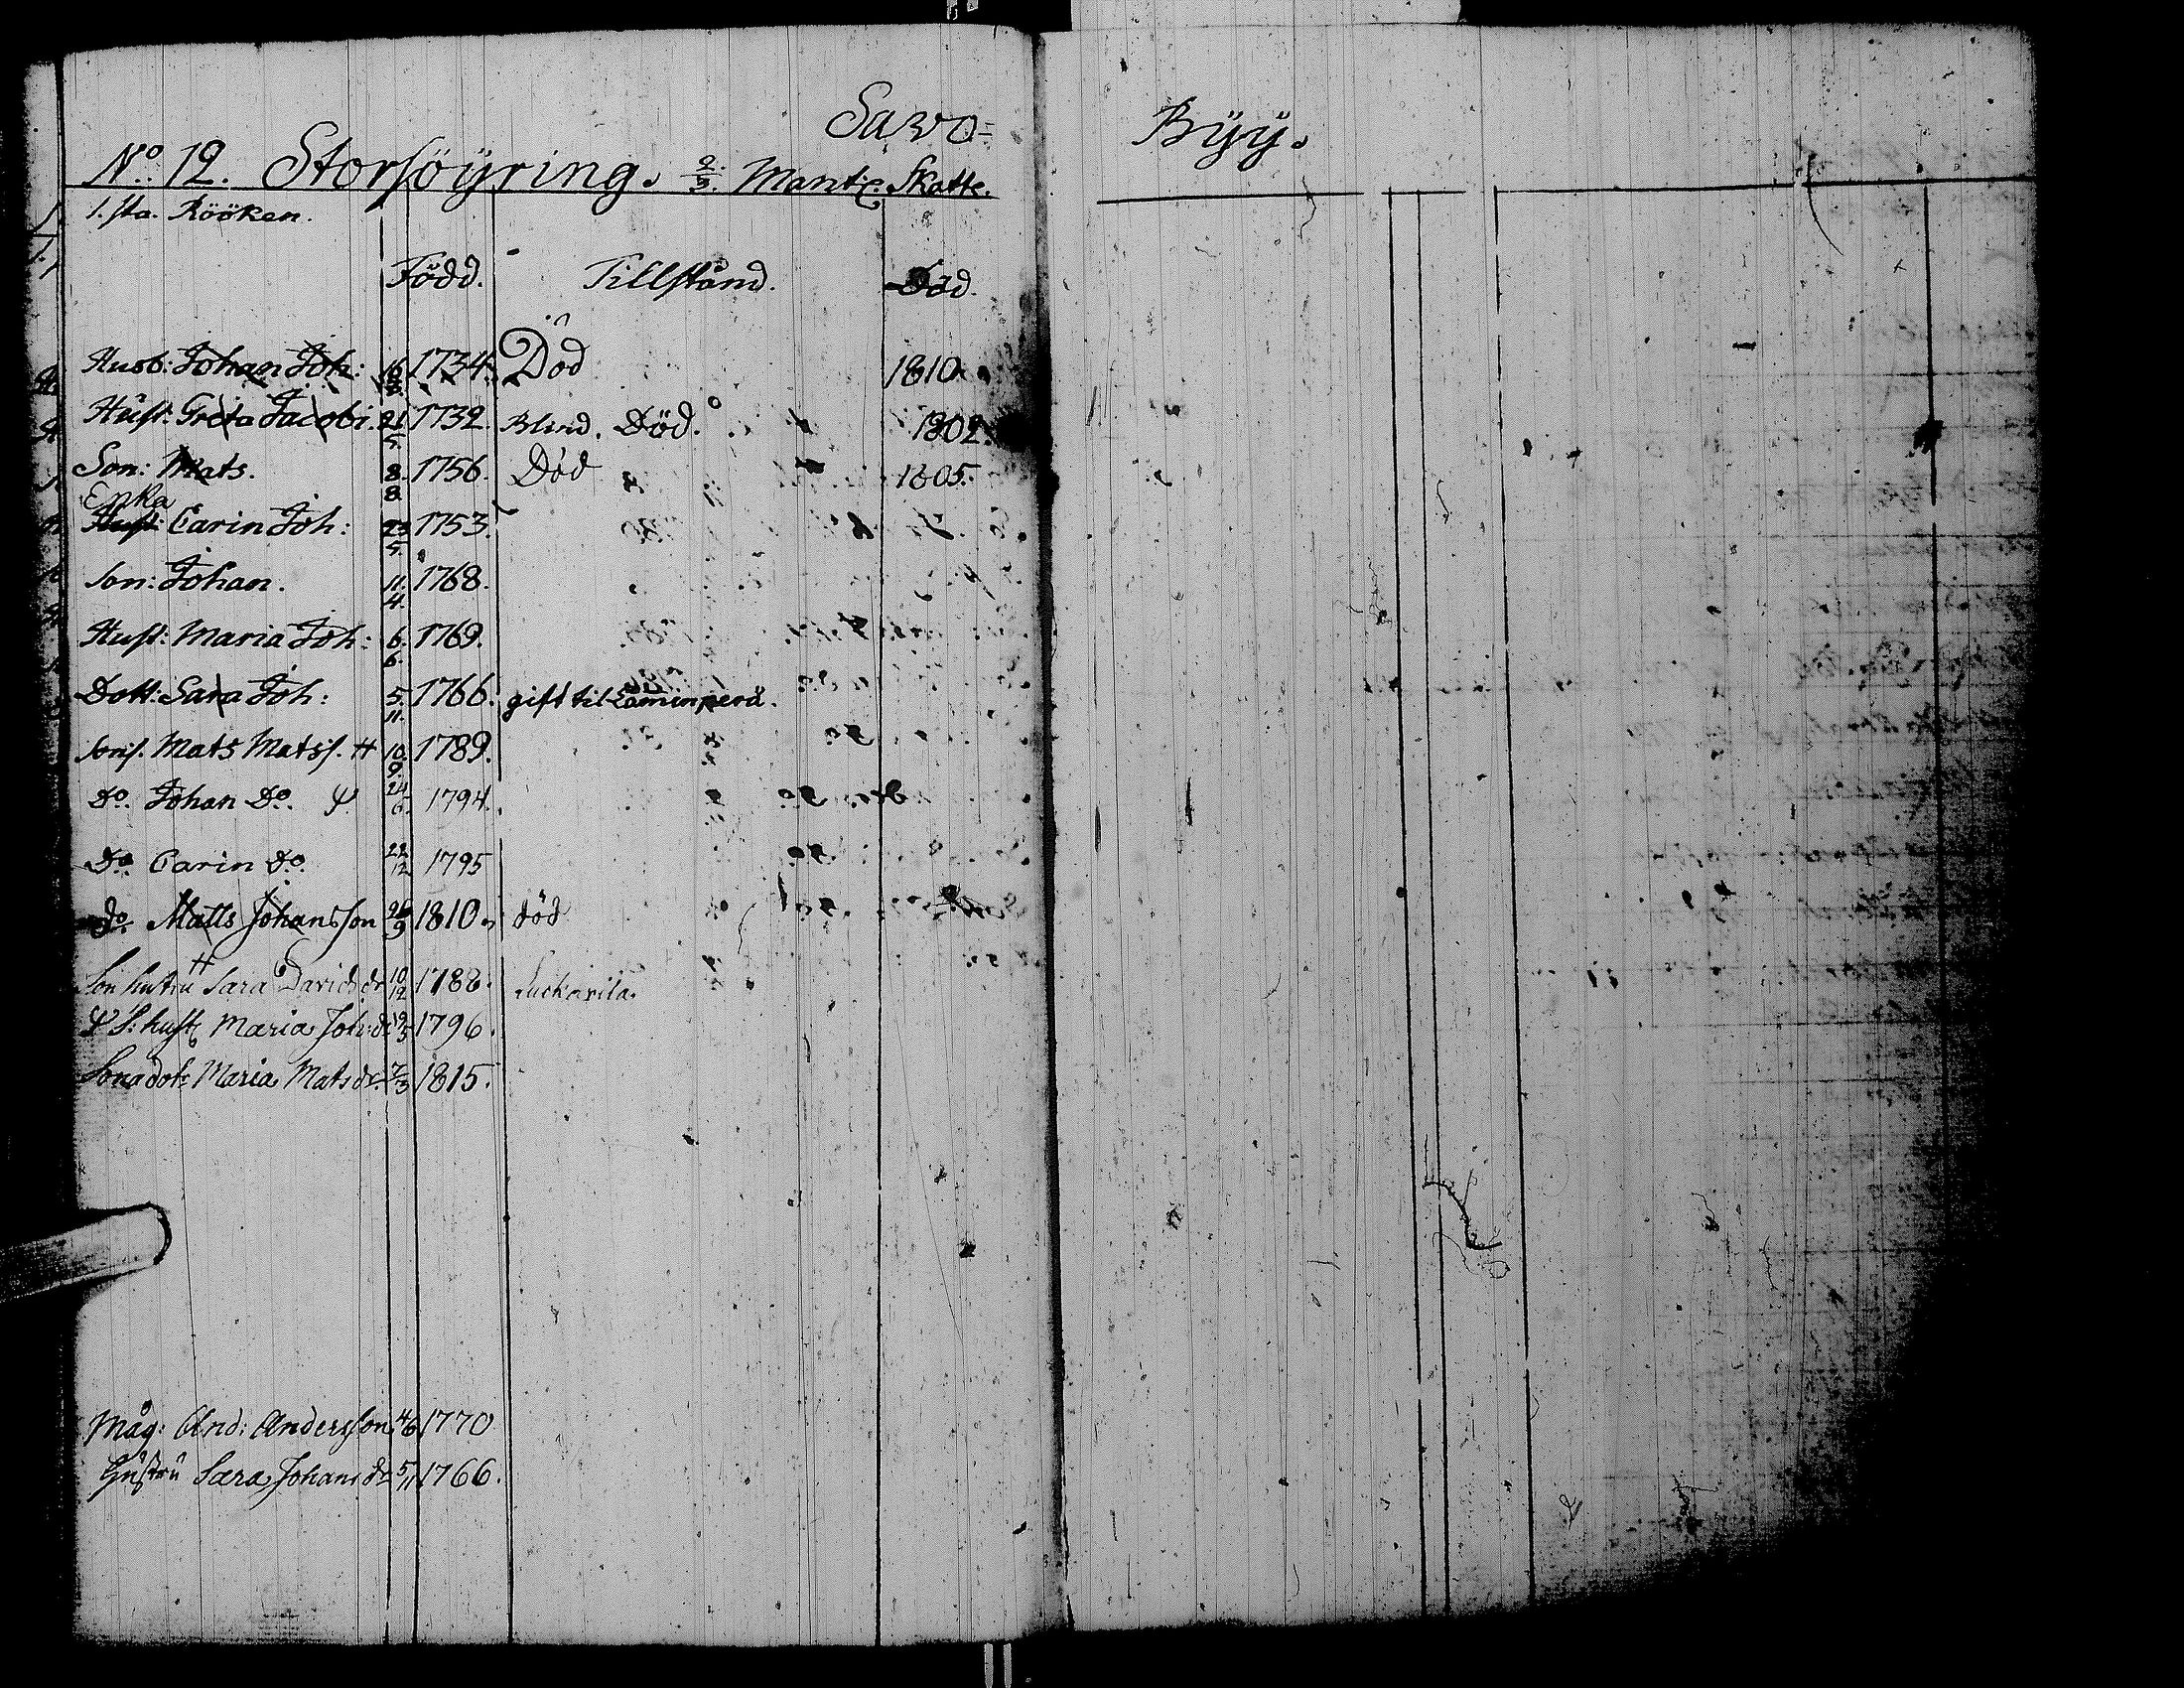 Savo= Byy.
No. 12. Storsöyring. 2/3. Mantl. Skatte.
1.sta. Rööken.
Född. Tillstånd. Död.
Husb: Johan Joh: 16/8. 1734. Död 1810.
Hust: Greta Jacobi. 21/5. 1732. Blind. Död. 1802.
Son: Mats. 8./8. 1756. Död 1805.
Enka
Hust: Carin Joh: 23/5. 1753.
Son: Johan. 11./4. 1768.
Hust: Maria Joh: 6./6. 1769.
Dott: Sara Joh: 5./11. 1766. gift til
Sons. Mats Matss. # 10./9. 1789.
Do. Johan Do. Ψ 24/6. 1794.
Do. Carin Do. 22/12 1795
do. Matts Johansson 1810. död
#
Son hustru Sara Davids dr 10/12 1788.
Ψ S: hust Maria Joh: dr 1796.
Sonadot: Maria Mats dr. 7/3 1815.
Måg: And: Andersson 4/6 1770
Hustru Sara Johans dr 5/11 1766.